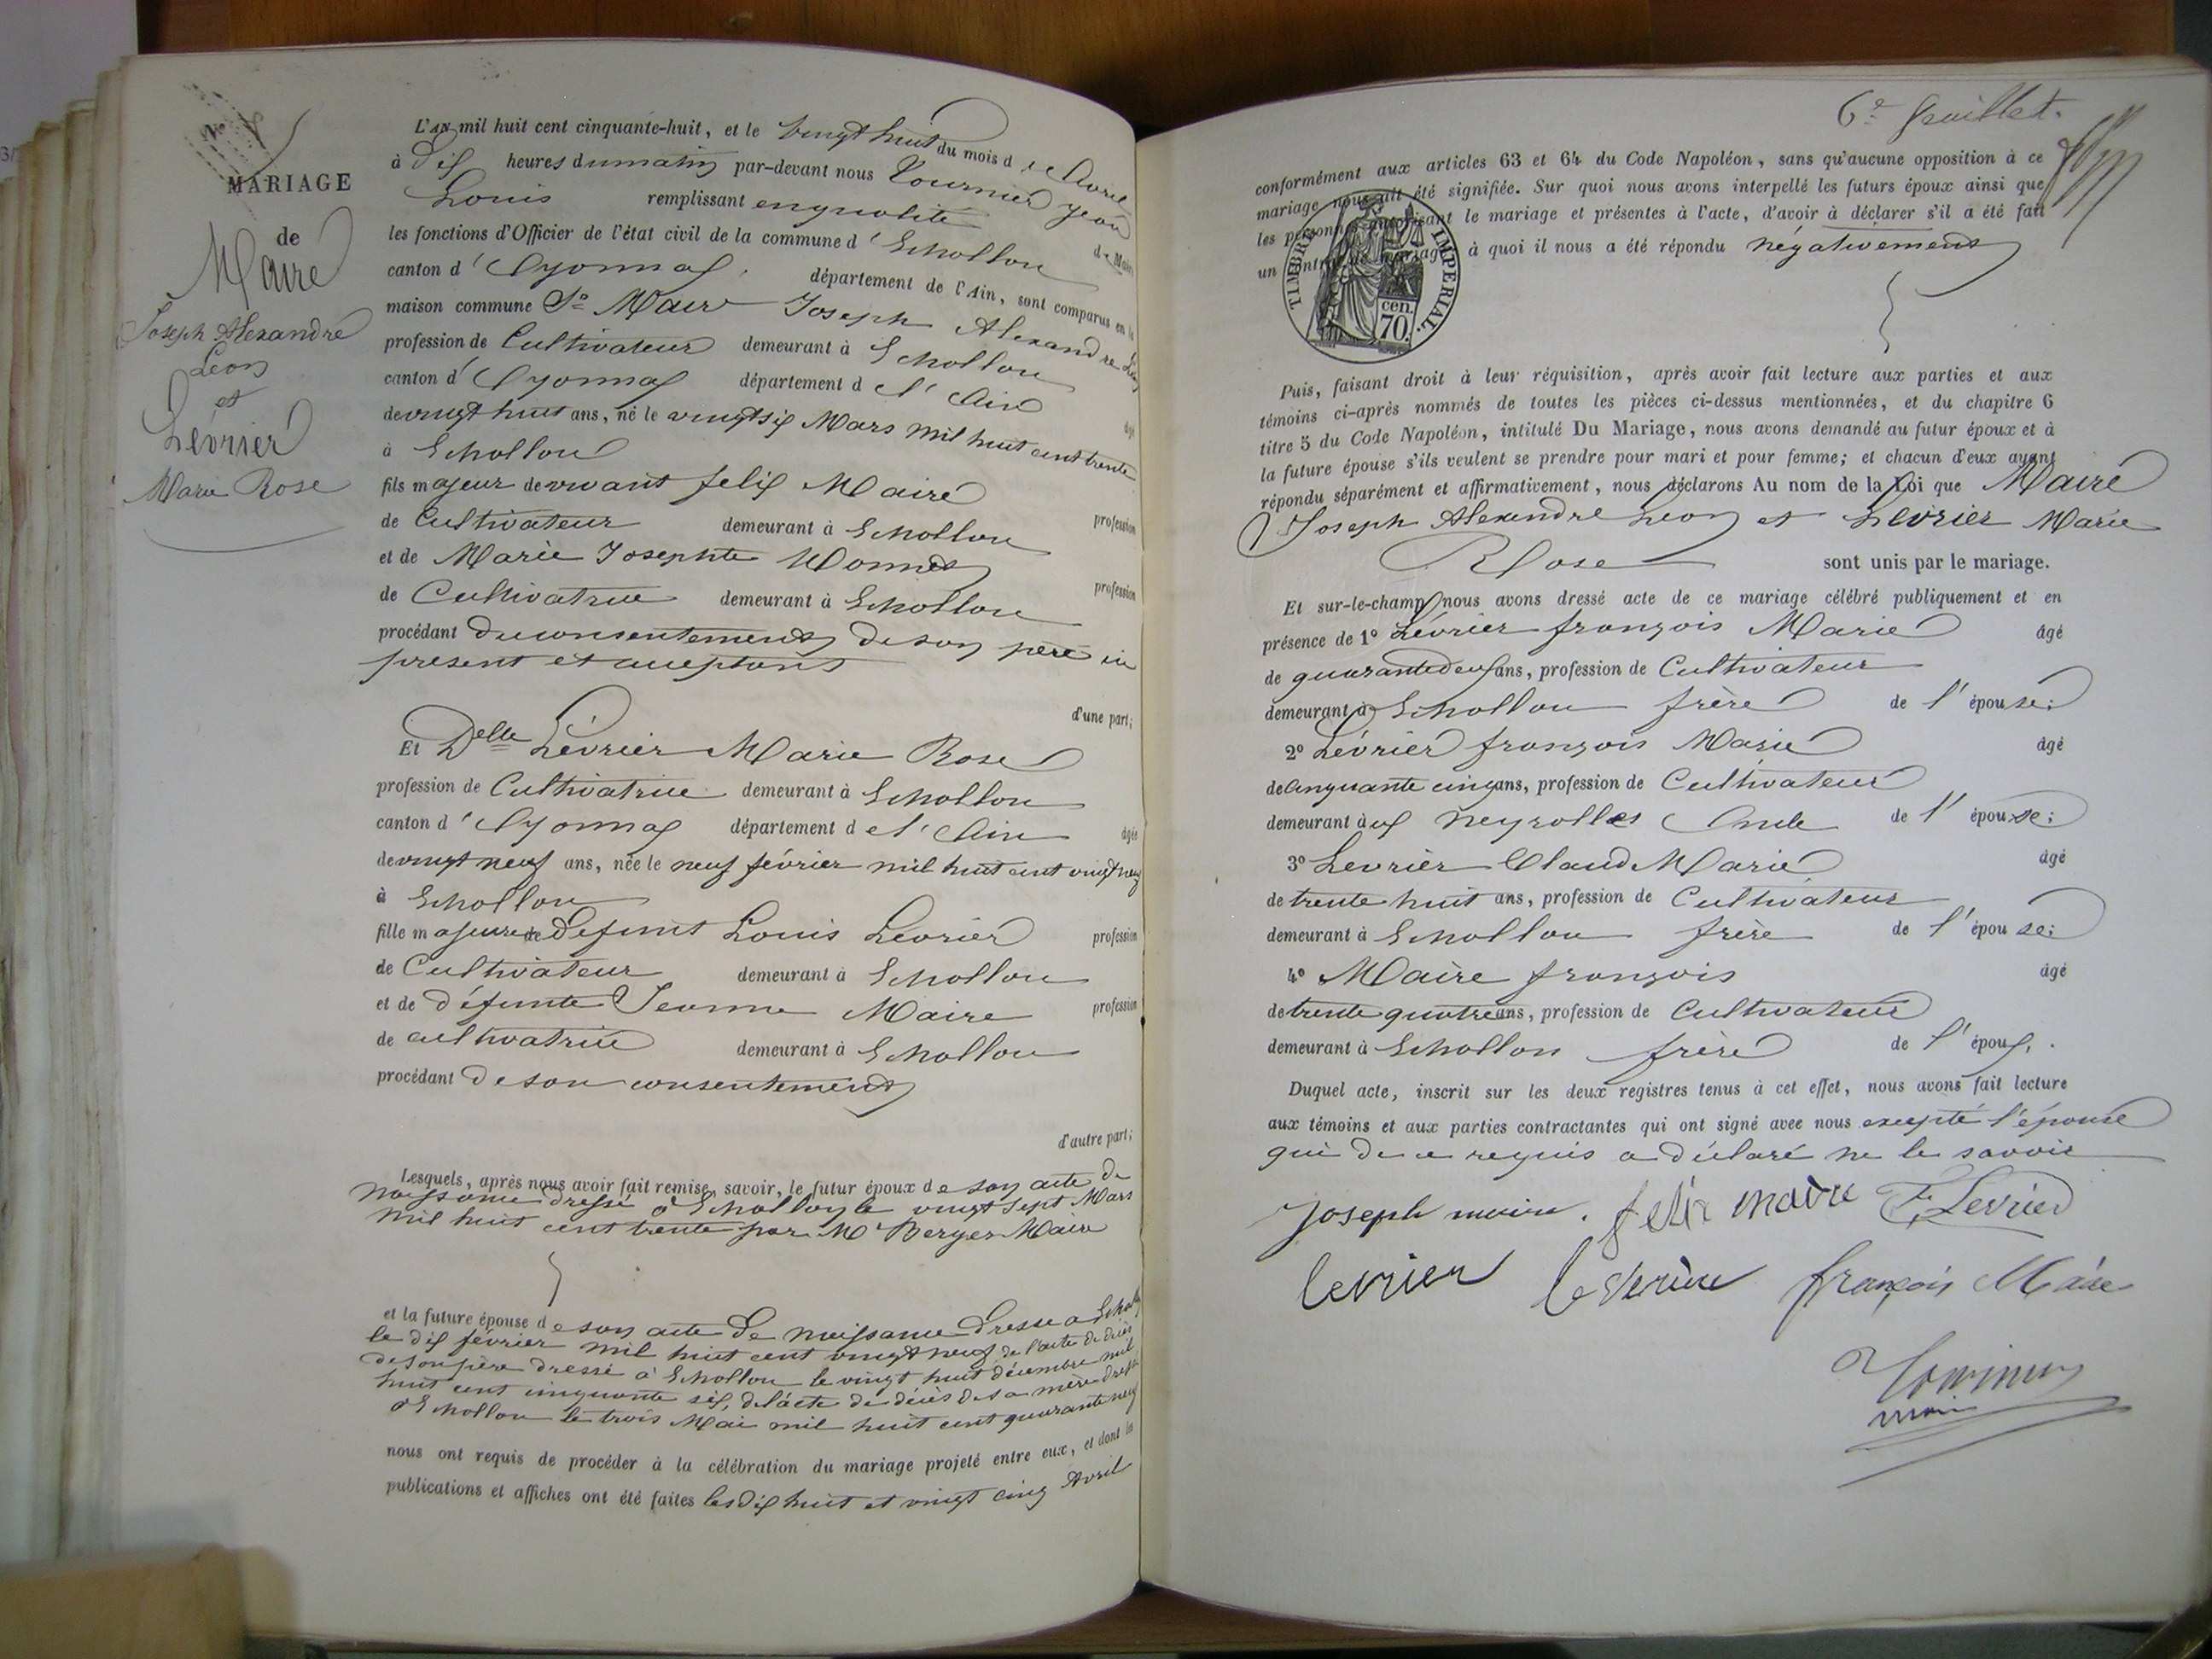 MARIAGE
de
Maire
Joseph Alexandre
Leon
et
Levrier
Marie Rose
L'AN mil huit cent cinquante-huit, et le vingt huit du mois d'Avril
à dix heures du matin par-devant nous Tournier Jean
Louis remplissant en qualité de Maire
les fonctions d'Officier de l'état civil de la commune d'Echallon
canton d'Oyonnax département de l'Ain, sont comparus en la
maison commune Sr Maire Joseph Alexandre Léon
profession de Cultivateur demeurant à Echallon
canton d'Oyonnax département de l'Ain âgé
de vingt huit ans, né le vingt six Mars mil huit cent trente
à Echallon
fils majeur de vivant felix Maire profession
de Cultivateur demeurant à Echallon
et de Marie Josephte profession
de Cultivatrice demeurant à Echallon
procédant du consentement de son père ici
present et acceptant
d'une part;
Et Delle Levrier Marie Rose
profession de Cultivatrice demeurant à Echallon
canton d'Oyonnax département de l'Ain âgée
de vingt neuf ans, née le neuf février mil huit cent vingt neuf
à Echallon
fille majeure de Defunt Louis Levrier profession
de Cultivateur demeurant à Echallon
et de défunte Jeanne Maire profession
de cultivatrice demeurant à Echallon
procédant de son consentement
d'autre part;
Lesquels, après nous avoir fait remise, savoir, le futur époux de son acte de
naissance dressé à Echallon le vingt sept Mars
mil huit cent trente par Mr Berger Maire
et la future épouse de son acte de naissance dressé à Echallon
le dix février mil huit cent vingt neuf, de l'acte de décès
de son père dressé à Echallon le vingt huit décembre mil
huit cent cinquante six, de l'acte de décès de sa mère dressé
à Echallon le trois Mai mil huit cent quarante neuf
nous ont requis de procéder à la célébration du mariage projeté entre eux, et dont les
publications et affiches ont été faites les dix huit et vingt cinq Avril
6e feuillet.
conformément aux articles 63 et 64 du Code Napoléon, sans qu'aucune opposition à ce
mariage nous ait été signifiée. Sur quoi nous avons interpellé les futurs époux ainsi que
les personnes autorisant le mariage et présentes à l'acte, d'avoir à déclarer s'il a été fait
un contrat de mariage, à quoi il nous a été répondu négativement
TIMBRE IMPERIAL.
cen.
70.
Puis, faisant droit à leur réquisition, après avoir fait lecture aux parties et aux
témoins ci-après nommés de toutes les pièces ci-dessus mentionnées, et du chapitre 6
titre 5 du Code Napoléon, intitulé Du Mariage, nous avons demandé au futur époux et à
la future épouse s'ils veulent se prendre pour mari et pour femme; et chacun d'eux ayant
répondu séparément et affirmativement, nous déclarons Au nom de la Loi que Maire
Joseph Alexandre Leon et Levrier Marie
Rose sont unis par le mariage.
Et sur-le-champ nous avons dressé acte de ce mariage célébré publiquement et en
présence de 1° Levrier françois Marie âgé
de quarante deux ans, profession de Cultivateur
demeurant à Echallon frère de l'épouse;
2° Levrier françois Marie âgé
de cinquante cinq ans, profession de Cultivateur
demeurant aux Neyrolles Oncle de l'épouse;
3° Levrier Claud Marie âgé
de trente huit ans, profession de Cultivateur
demeurant à Echallon frère de l'épouse;
4° Maire françois âgé
de trente quatre ans, profession de Cultivateur
demeurant à Echallon frère de l'époux.
Duquel acte, inscrit sur les deux registres tenus à cet effet, nous avons fait lecture
aux témoins et aux parties contractantes qui ont signé avec nous excepté l'épouse
qui de ce requis a déclaré ne le savoir
Joseph maire. felix maire F. Levrier
levrier françois Maire
Tournier
maire